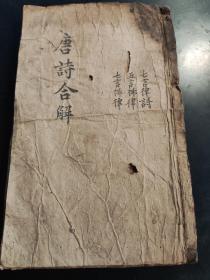 唐詩合解
七言律詩
五言排律
七言排律